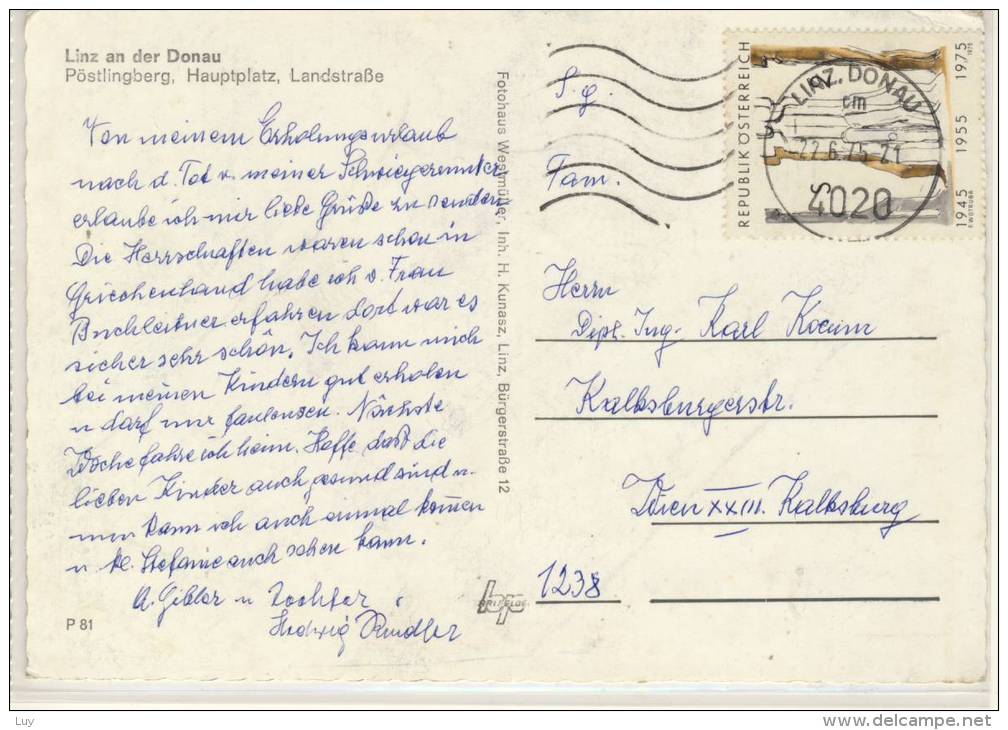 Linz an der Donau
Pöstlingberg, Hauptplatz, Landstraße
Von meinem Erholungsurlaub
nach d. Tot v. meiner Schwiegermutter
erlaube ich mir liebe Grüße zu senden
Die Herrschaften waren schon in
Griechenland habe ich v. Frau
Buchleitner erfahren dort war es
sicher sehr schön. Ich kann mich
bei meinen Kindern gut erholen
u darf nur faulenzen. Nächste
Woche fahre ich heim. Hoffe, daß die
lieben Kinder auch gesund sind u.
nun kann ich auch einmal kommen
u. kl. Stefanie auch sehen kann.
A. Gibler u Tochter
Hedwig
P 81
Fotohaus Westmüller, Inh. H. Kunasz, Linz, Bürgerstraße 12
bp
REPUBLIK ÖSTERREICH
1945 1955 1975
1975
R.WOTRUBA
LINZ, DONAU
22.6.75-21
4020
S. g.
Fam.
Herrn
Dipl. Ing. Karl
Kalksburgerstr.
Wien XXIII. Kalksburg
1238
Luy
delcampe.net